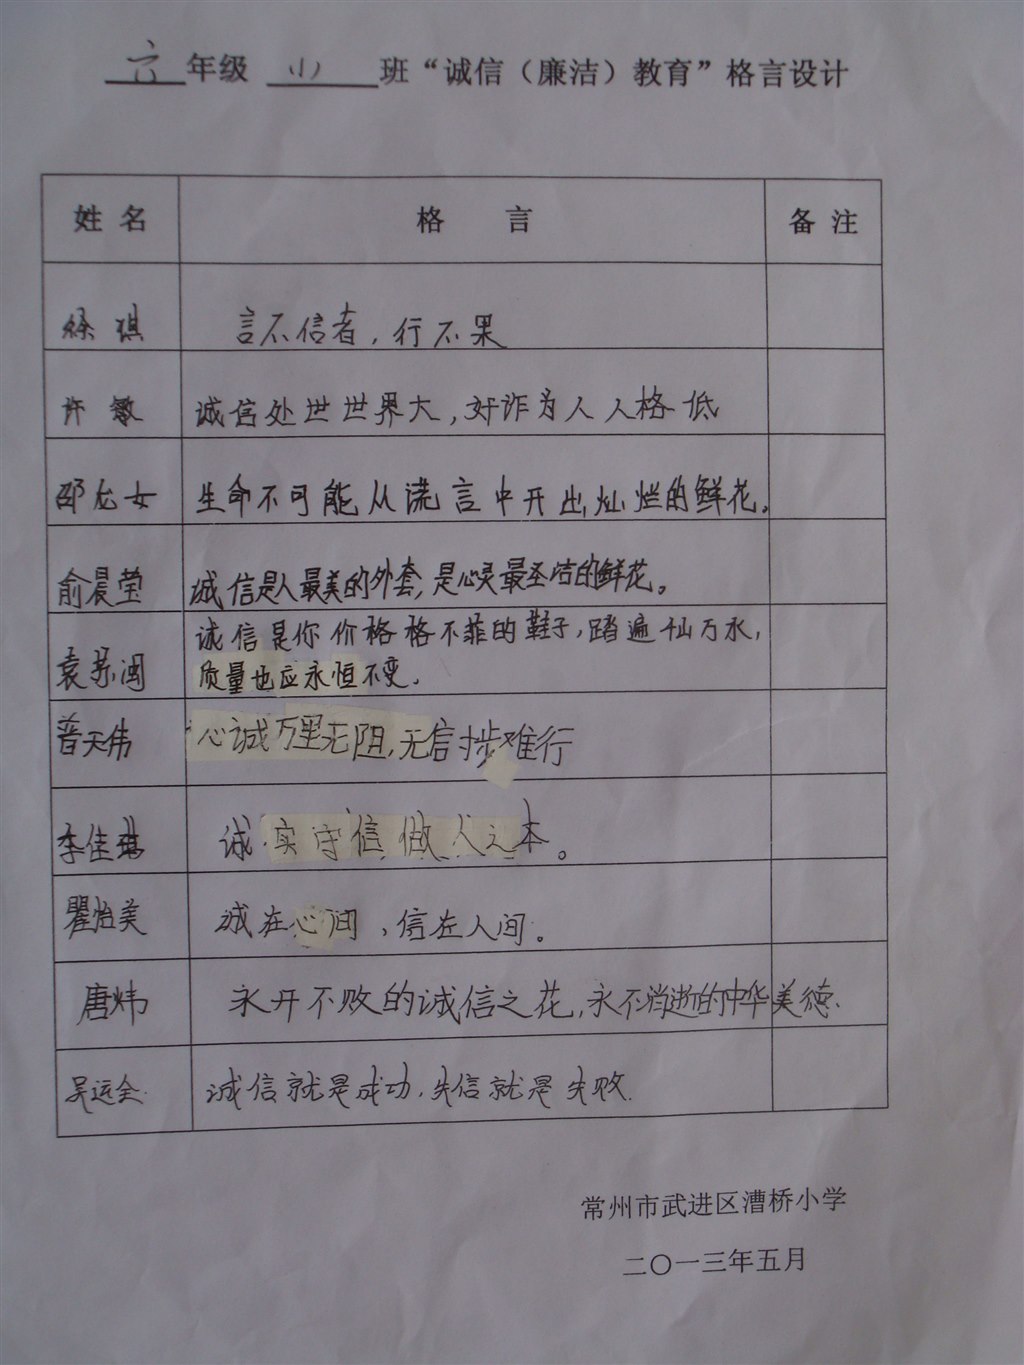 六年级 (1) 班“诚信（廉洁）教育”格言设计
姓 名 格 言 备 注
徐 琪 言不信者，行不果
许 敏 诚信处世世界大，奸诈为人人格低
邵龙女 生命不可能从谎言中开出灿烂的鲜花。
俞晨莹 诚信是人最美的外套，是心灵最圣洁的鲜花。
诚信是你价格格不菲的鞋子，踏遍仙万水，
袁苏闽 质量也应永恒不变.
普天伟 “心诚万里无阻，无信寸步难行
李佳琪 诚实守信做人之本。
瞿怡美 诚在心间，信在人间。
唐炜 永开不败的诚信之花，永不消逝的中华美德.
吴远全. 诚信就是成功.失信就是失败.
常州市武进区漕桥小学
二〇一三年五月